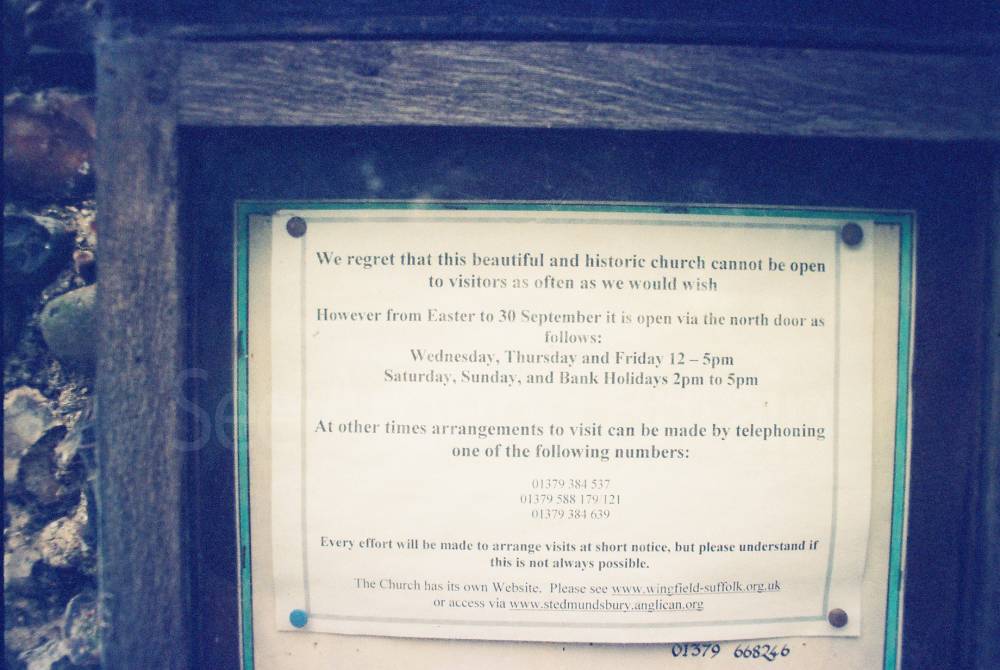 We regret that this beautiful and historic church cannot be open
to visitors as often as we would wish
However from Easter to 30 September it is open via the north door as
follows:
Wednesday, Thursday and Friday 12 – 5pm
Saturday, Sunday, and Bank Holidays 2pm to 5pm
At other times arrangements to visit can be made by telephoning
one of the following numbers:
01379 384 537
01379 588 179/121
01379 384 639
Every effort will be made to arrange visits at short notice, but please understand if
this is not always possible.
The Church has its own Website. Please see www.wingfield-suffolk.org.uk
or access via www.stedmundsbury.anglican.org
01379 668246